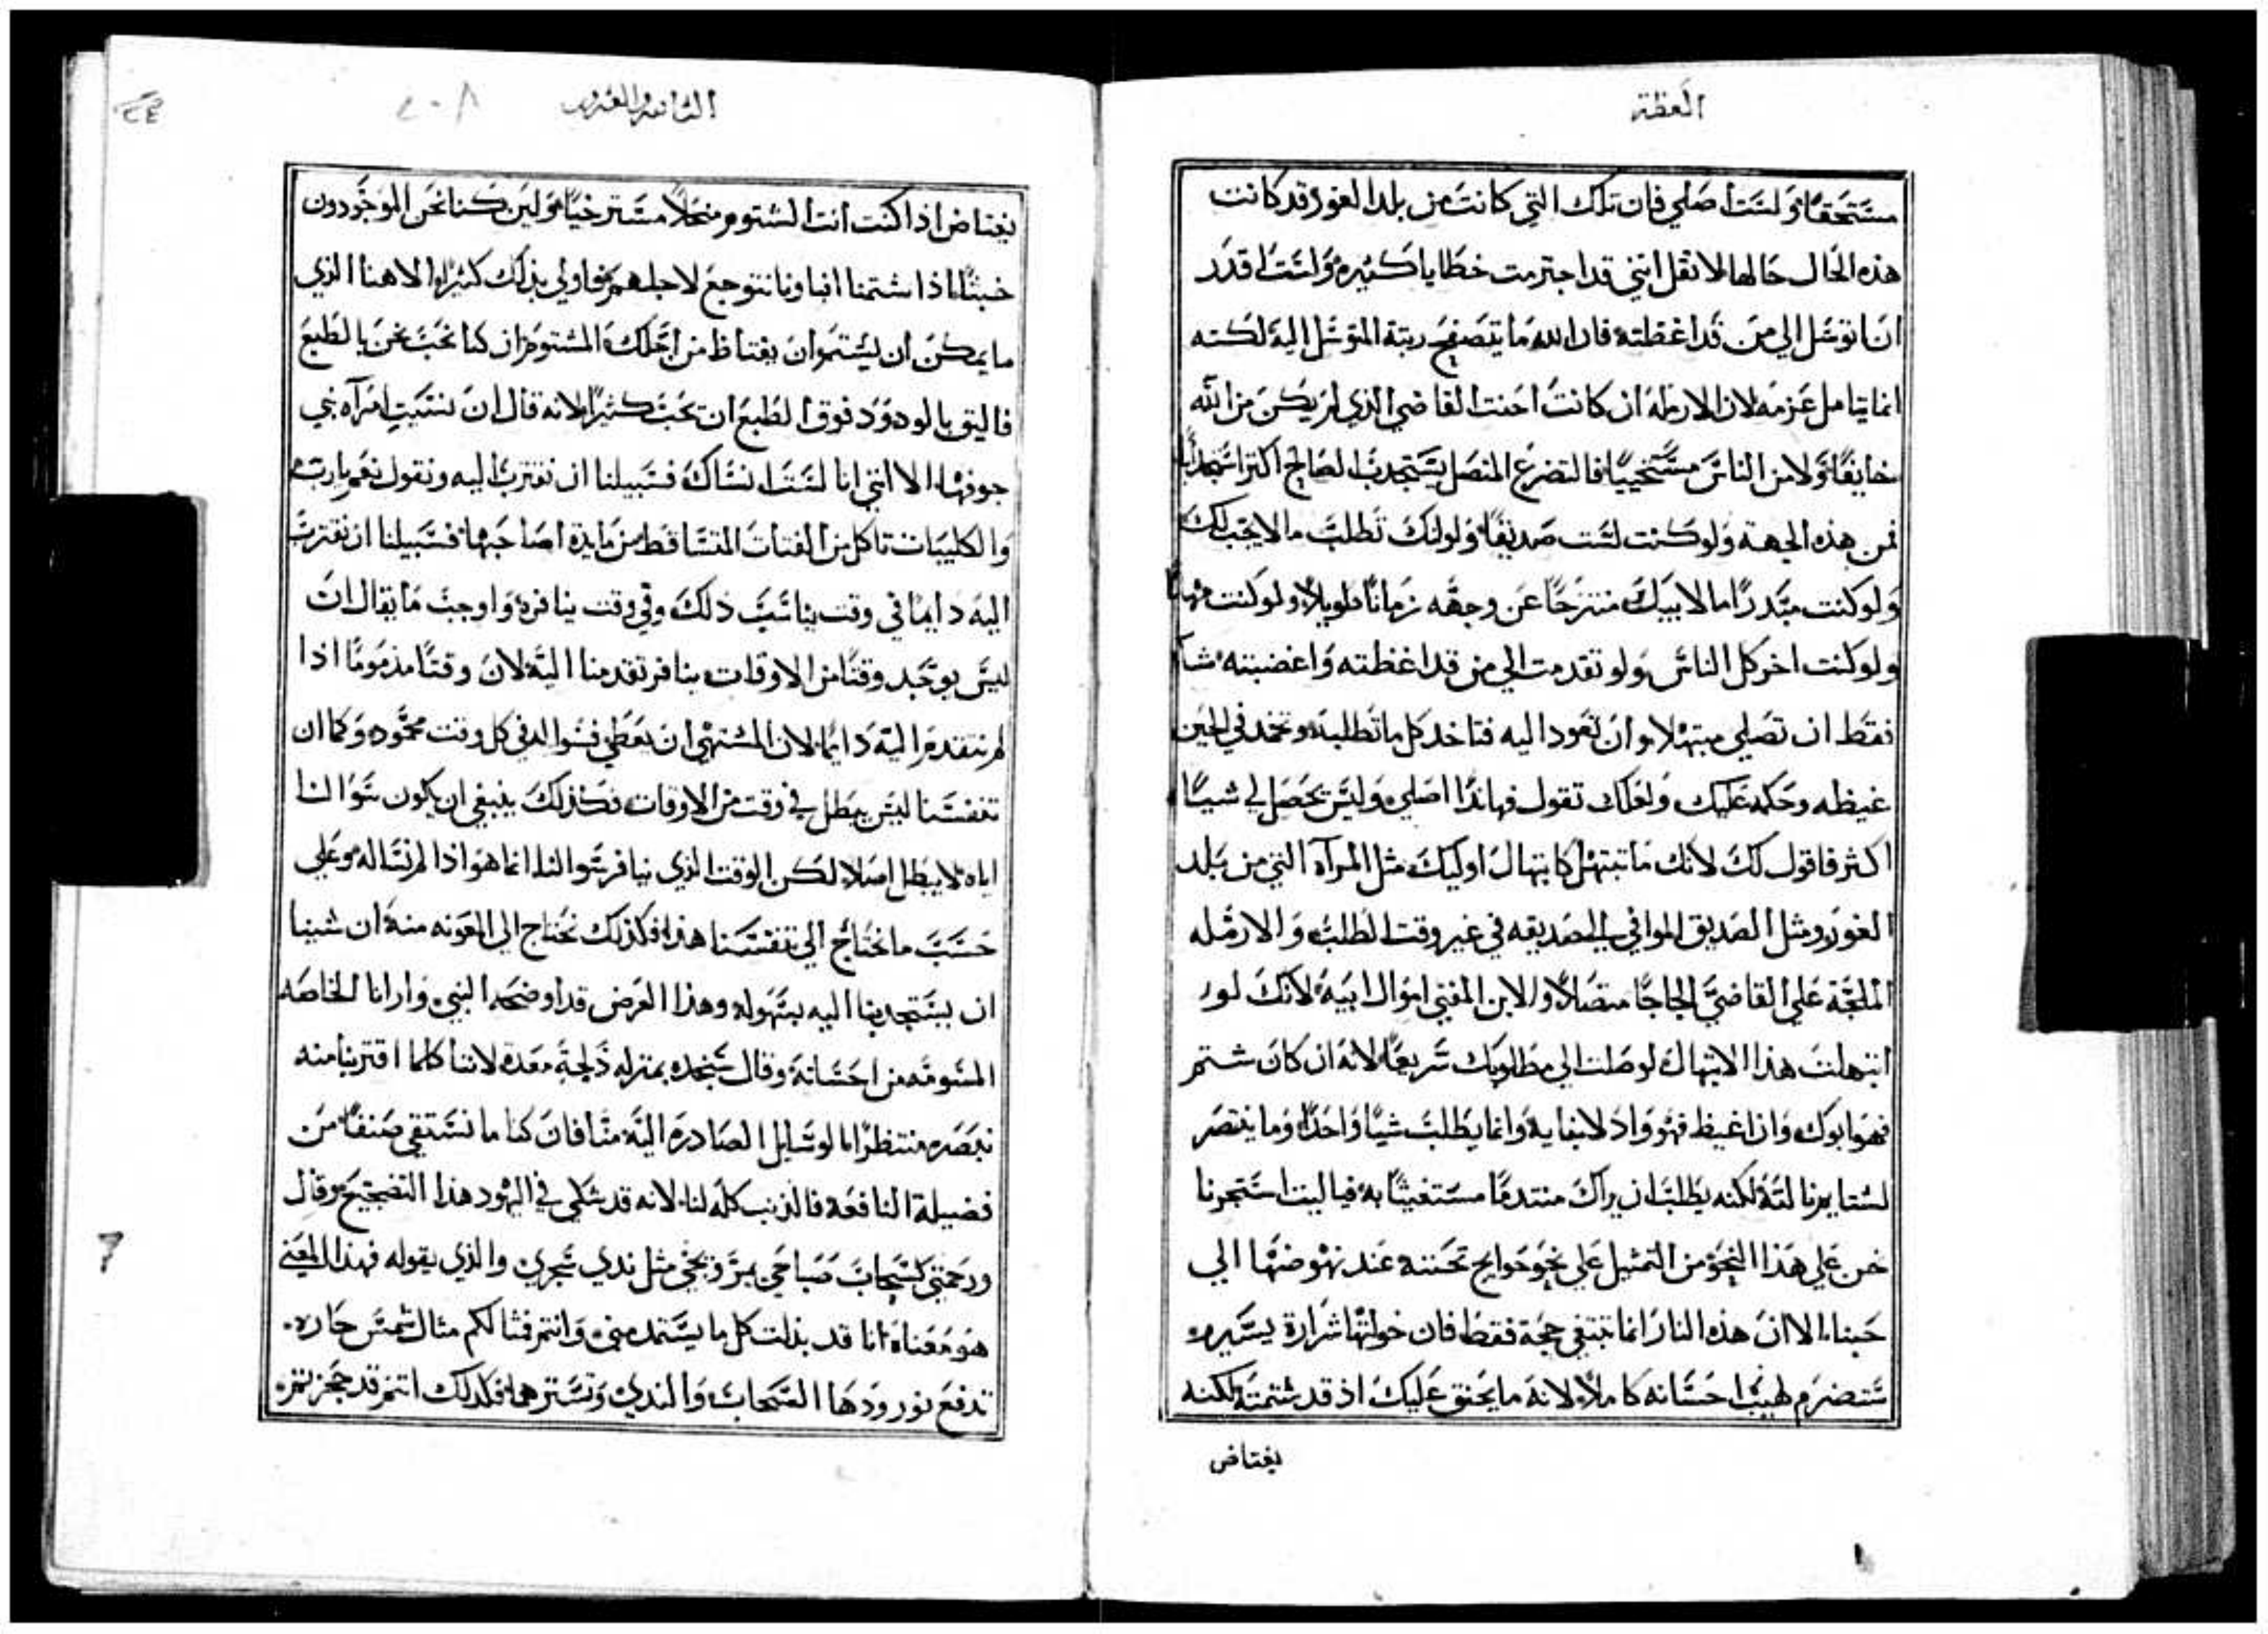 العظة
مستحقا ولست اصلي فان تلك التي كانت من بلد الغور قد كانت
هذه الحال حالها لا تقل انني قد اجترمت خطايا كثيره ولست اقدر
ان اتوسل الي من قد اغظته فان الله ما يتصفح رتبة المتوسل اليه لكنه
انما يتامل عزمه لان الارمله ان كانت احنت القاضي الذي لم يكن من الله
خايفًا ولا من الناس مستحييًا فالتضرع المتصل يستجدب الصالح اكثر استجدابًا
فمن هذه الجهة ولو كنت لست صديقًا ولو انك تطلب ما لا يجب لك
ولو كنت مبدرًا مال ابيك منتزحًا عن وجهه زمانًا طويلا ولو كنت مهانًا
ولو كنت اخر كل الناس ولو تقدمت الي من قد اغظته واغضبته شا
فقط ان تصلي مبتهلا وان تعود اليه فتاخد كل ما تطلبه وتخمد في الحين
غيظه وحكمه عليك ولعلك تقول فهانذا اصلي وليس يحصل لي شيًا
اكثر فاقول لك لانك ما تبتهل كابتهال اوليك مثل المرآه التي من بلد
الغور ومثل الصديق الموافي الي صديقه في غير وقت الطلب والارمله
الملجة علي القاضي الحاجًا متصلًا والابن المفني اموال ابيه لانك لو
ابتهلت هذا الابتهال لوصلت الي مطلوبك سريعًا لانه ان كان شتم
فهو ابوك وان اغيظ فهو واد لابنايه وانما يطلب شيًا واحدًا وما ينتصر
لشتايمنا لته لكنه يطلب ان يراك منتدمًا مستغيثًا به فيا ليت استحرنا
نحن علي هذا النحو من التمثيل علي نحو حوايج تحننه عند نهوضها الي
حبنا الا ان هذه النار انما تبتغي حجة فقط فان خولتها شرارة يسيره
ستضرم لهيب احسانه كاملًا لانه ما يحنق عليك اذ قد شتمته لكنه
يغتاض
الثانيه والعشرون
٢٠٨
يغتاض اذا كنت انت الشتوم منحلًا مسترخيًا ولين كنا نحن الموجودون
خبثًا اذا شتمنا ابناونا نتوجع لاجلهم فاولي بذلك كثيرًا الاهنا الذي
ما يمكن ان يشتم وان يغتاظ من اجلك المشتوم ان كنا نحب نحن بالطبع
فاليق بالودود فوق الطبع ان يحب كثيرًا لانه قال ان نسيت امرآه بني
جوفها الا انني انا لست انساك فسبيلنا ان نقترب اليه ونقول نعم يارب
والكليبات تاكل من الفتات المتساقط من مايدة اصاحبها فسبيلنا ان نقترب
اليه دايمًا في وقت يناسب ذلك وفي وقت ينافره واوجب ما يقال ان
ليس يوجد وقتًا من الاوقات ينافر تقدمنا اليه لان وقتًا مذمومًا اذا
لم نتقدم اليه دايمًا لان المشتهي ان يعطي فسواله في كل وقت محمود وكما ان
تنفسنا ليس يبطل في وقت من الاوقات فكذلك ينبغي ان يكون سوالنا
اياه لا يبطل اصلا لكن الوقت الذي ينافر سوالنا انما هو اذا لم نساله وعلي
حسب ما نحتاج الي تنفسنا هذا فكذلك نحتاج الي المعونه منه ان شينا
ان يستجدبنا اليه بسهوله وهذا الغرض قد اوضحه النبي وارانا الخاصه
المسومه من احسانه وقال سنجده بمنزله دلجة معده لاننا كلما اقتربنا منه
نبصره منتظرًا الوسايل الصادره اليه منا فان كنا ما نستقي صنفًا من
فضيلة النافعه فالذنب كله لنا لانه قد شكي في اليهود هذا التضجيج وقال
ورحمتي كسحاب صباحي مر وتجي مثل ندي سحري والذي يقوله فهذا المعني
هو معناه انا قد بذلت كل ما يستمد مني وانتم فثالكم مثال شمس حاره
تدفع نورودها السحاب والندي وتسترهما فكدلك انتم قد حجزتم